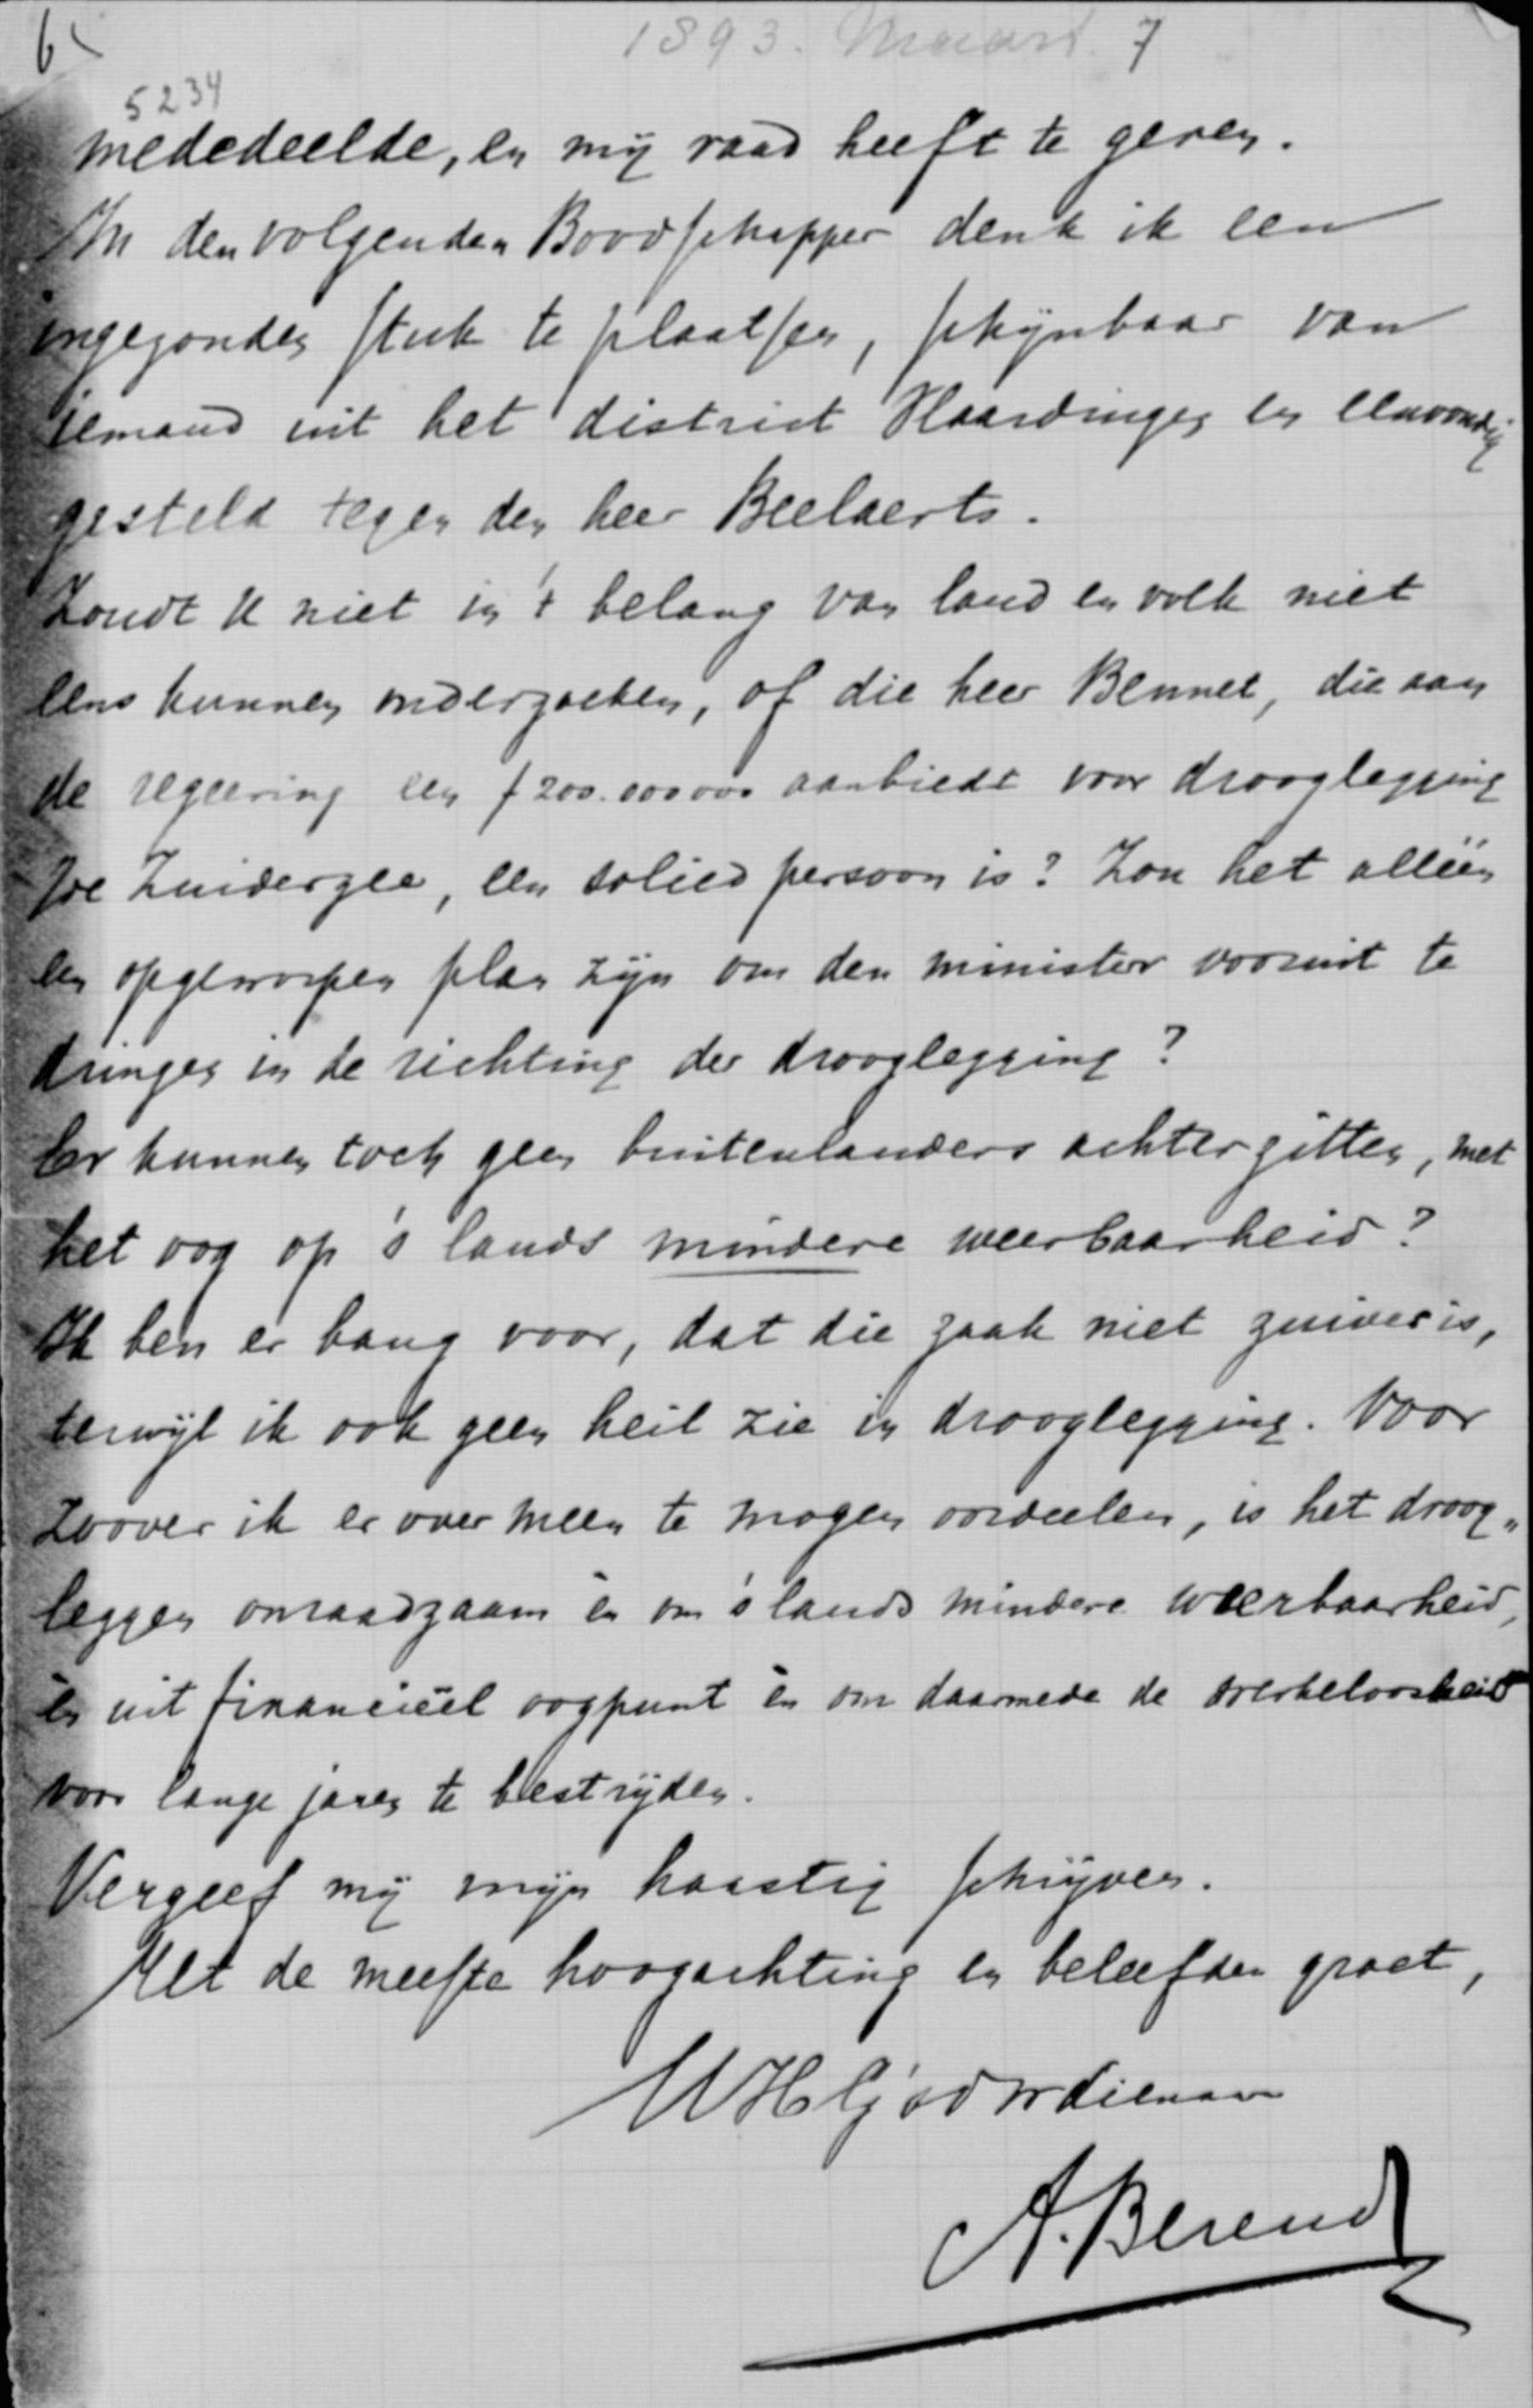 6
1893. Maart 7
5234
mededeelde, en mij raad heeft te geven.
In den volgenden Boodschapper denk ik een
ingezonden stuk te plaatsen, schijnbaar van
iemand uit het district Vlaardingen en eenvoudig
gesteld tegen den heer Beelaerts.
Zoudt U niet in 't belang van land en volk niet
eens kunnen onderzoeken, of die heer Bennet, die aan
de regeering een f 200.000000 aanbiedt voor drooglegging
der Zuiderzee, een solied persoon is? Zou het alléén
een opgeworpen plan zijn om den minister vooruit te
dringen in de richting der drooglegging?
Er kunnen toch geen buitenlanders achter zitten, met
het oog op 's lands mindere weerbaarheid?
Ik ben er bang voor, dat die zaak niet zuiver is,
terwijl ik ook geen heil zie in drooglegging. Voor
zoover ik er over meen te mogen oordeelen, is het droog„
leggen onraadzaam èn om 's lands mindere weerbaarheid,
èn uit financieël oogpunt èn om daarmede de werkeloosheid
voor lange jaren te bestrijden.
Vergeef mij mijn haastig schrijven.
Met de meeste hoogachting en beleefden groet,
UHEG's dw dienaar
A. Berend